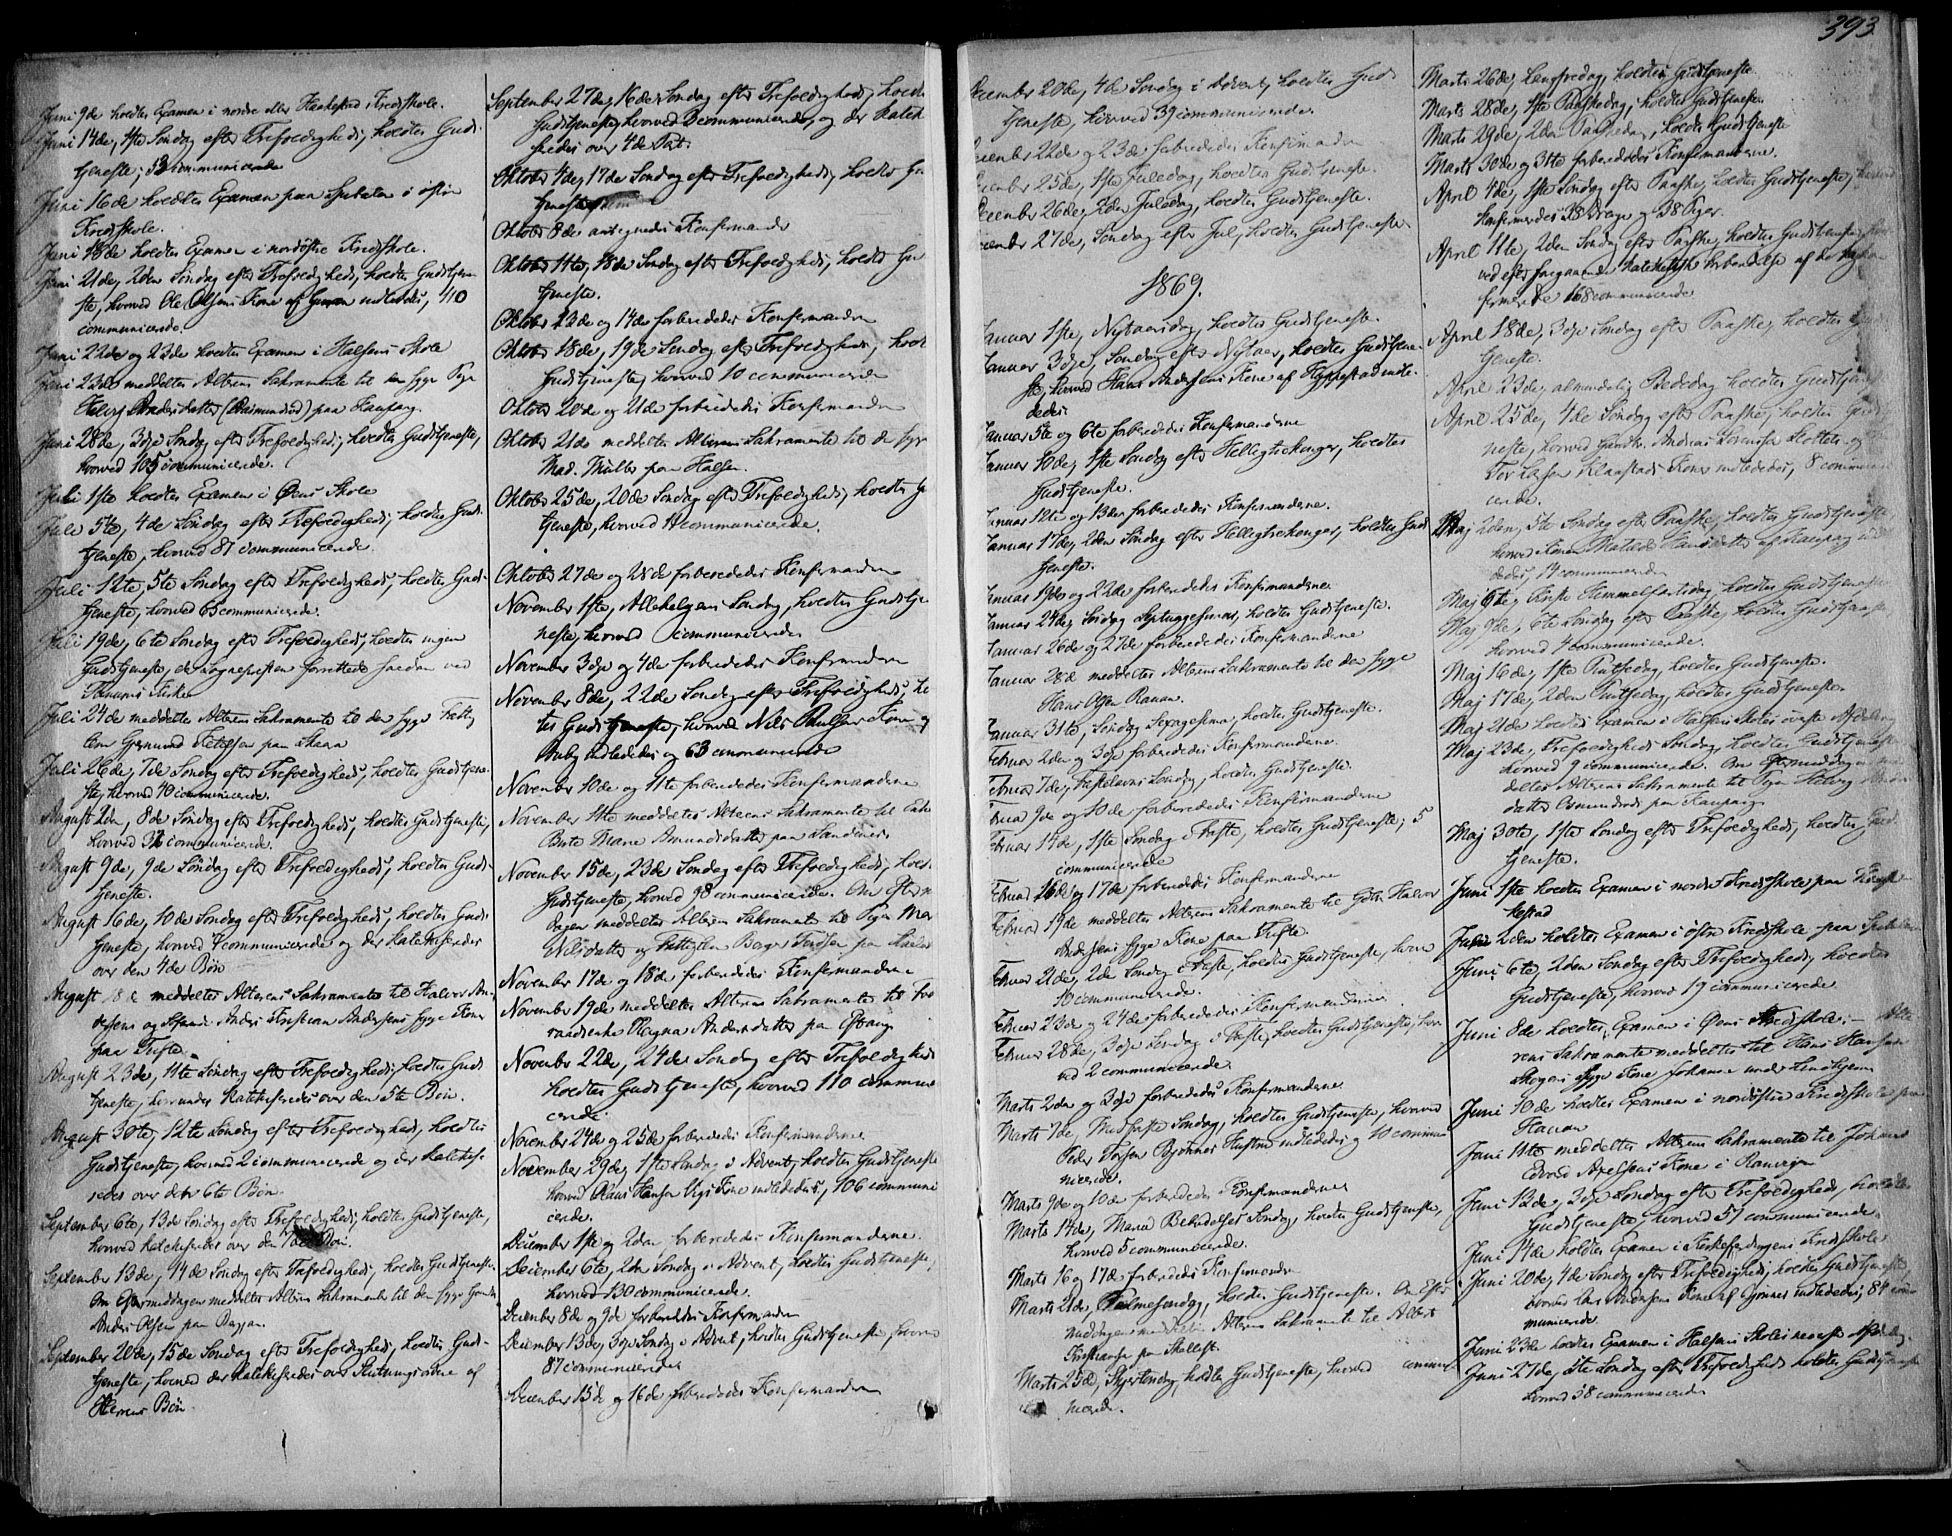 393
Juni 9de holdtes Examen i nordre eller Kredsskole.
Juni 14de, 1ste Søndag efter Trefoldighed, holdtes Guds-
tjeneste; 53 communicerende
Juni 16de holdtes Examen paa i østre
Kredsskole.
Juni 18de holdtes Examen i nordøstre Kredsskole.
Juni 21de, 2den Søndag efter Trefoldighed, holdtes Gudstjene-
ste, hvorved Ole Olsens Kone af indlededes, 110
communicerende.
Juni 22de og 23de holdtes Examen i Halsens Skole
Juni 23de meddeltes Alterens Sakramente til den syge Pige
paa Kaupang.
Juni 28de, 3dje Søndag efter Trefoldighed, holdtes Gudstjeneste,
hvorved 105 communicerende.
Juli 1ste holdtes Examen i Øens Skole
Juli 5te, 4de Søndag efter Trefoldighed, holdtes Guds-
tjeneste, hvorved 87 communicerende.
Juli 12te, 5te Søndag efter Trefoldighed, holdtes Guds-
tjeneste, hvorved 65 communicerende.
Juli 19de, 6te Søndag efter Trefoldighed, holdtes ingen
Gudstjeneste, da Sognepresten forrettede ved
Kirke
Juli 24de meddeltes Alterens Sakramente til den syge
paa
Juli 26de, 7de Søndag efter Trefoldighed, holdtes Gudstjene-
ste, hvorved 40 communicerende.
August 2den, 8de Søndag efter Trefoldighed, holdtes Gudstjeneste,
hvorved communicerende.
August 9de, 9de Søndag efter Trefoldighed, holdtes Guds-
tjeneste.
August 16de, 10de Søndag efter Trefoldighed, holdtes Guds-
tjeneste, hvorved 7 communicerende og der katekiseredes
over den 4de Bøn
August 18de meddeltes Alterens Sakramente til Halvor An-
dersens og Andersens syge Koner
paa
August 23de, 11te Søndag efter Trefoldighed, holdtes Guds-
tjeneste, hvorunder katekiseredes over den 5te Bøn.
August 30te, 12te Søndag efter Trefoldighed, holdtes
Gudstjeneste, hvorved 2 communicerende og der katekise-
redes over den 6te Bøn.
September 6te, 13de Søndag efter Trefoldighed, holdtes Gudstjeneste,
hvorved katekiseredes over den 7de Bøn.
September 13de, 14de Søndag efter Trefoldighed, holdtes Gudstjeneste.
Om Eftermiddagen meddeltes Alterens Sakramente til den syge
Anders Olsen paa
September 20de, 15de Søndag efter Trefoldighed, holdtes Guds-
tjeneste, hvorved der katekiseredes over Slutningsordene af
Herrens Bøn.
September 27de, 16de Søndag efter Trefoldighed, holdtes
Gudstjeneste, hvorved 3 communicerende, og der katek
seredes over 4de Part.
Oktober 4de, 17de Søndag efter Trefoldighed, holdtes Gu
tjeneste
Oktober 8de antegnedes Konfirmander
Oktober 11te, 18de Søndag efter Trefoldighed, holdtes Gu
tjeneste.
Oktober 13de og 14de forberededes Konfirmanderne
Oktober 18de, 19de Søndag efter Trefoldighed, hold
Gudstjeneste, hvorved 10 communicerende
Oktober 20de og 21de forberededes Konfirmanderne
Oktober 21de meddeltes Alterens Sakramente til den syge
Mad. paa Halsen.
Oktober 25de, 20de Søndag efter Trefoldighed, holdtes G
tjeneste, hvorved communicerende.
Oktober 27de og 28de forberededes Konfirmanderne
November 1ste, Allehelgens Søndag, holdtes Gudstje
neste, hvorved communicerende
November 3dje og 4de forberededes Konfirmanderne
November 8de, 22de Søndag efter Trefoldighed, hol
tes Gudstjeneste, hvorved Niels Kone
indlededes og 63 communicerende
November 10de og 11te forberededes Konfirmanderne
November 11te meddeltes Alterens Sakramente til
Berte Marie Amundsdatter paa
November 15de, 23de Søndag efter Trefoldighed, hold
Gudstjeneste, hvorved 98 communicerende. Om Efterm
dagen meddeltes Alterens Sakramente til Pigen
Nilsdatter og paa
November 17de og 18de forberededes Konfirmanderne
November 19de meddeltes Alterens Sakramente til
Andersdatter paa
November 22de, 24de Søndag efter Trefoldighed
holdtes Gudstjeneste, hvorved 110 commun
cerende.
November 24de og 25de forberededes Konfirmanderne
November 29de, 1ste Søndag i Advent, holdtes Gudstjeneste
hvorved Hansen Kone indlededes, 106 communi
cerende.
December 1ste og 2den forberededes Konfirmanderne.
December 6te, 2den Søndag i Advent, holdtes Gudstjeneste,
hvorved 130 communicerende.
December 8de og 9de forberededes Konfirmanderne
December 13de, 3dje Søndag i Advent, holdtes Gudstjeneste hvorved
87 communicerende
December 15de og 16de forberededes Konfirmanderne
December 20de, 4de Søndag i Advent, holdtes Guds-
tjeneste, hvorved 39 communicerende.
December 22de og 23de forberededes Konfirmanderne
December 25de, 1ste Juledag, holdtes Gudstjeneste.
December 26de, 2den Juledag, holdtes Gudstjeneste.
December 27de, Søndag efter Jul, holdtes Gudstjeneste.
1869.
Januar 1ste, Nytaarsdag, holdtes Gudstjeneste.
Januar 3dje, Søndag efter Nytaar, holdtes Gudstjene-
ste, hvorved Hans Andersens Kone af indle-
dedes.
Januar 5te og 6te forberededes Konfirmanderne
Januar 10de, 1ste Søndag efter Helligtrekonger, holdtes
Gudstjeneste.
Januar 12te og 13de forberededes Konfirmanderne.
Januar 17de, 2den Søndag efter Helligtrekonger, holdtes Guds
tjeneste.
Januar 19de og 22de forberededes Konfirmanderne
Januar 24de, Søndag Septuagesima, holdtes Gudstjeneste.
Januar 26de og 27de forberededes Konfirmanderne
Januar 28de meddeltes Alterens Sakramente til den syge
Hans Olsen
Januar 31te, Søndag Sexagesima, holdtes Gudstjeneste.
Februar 2den og 3dje forberededes Konfirmanderne.
Februar 7de, Fastelavns Søndag, holdtes Gudstjeneste.
Februar 9de og 10de forberededes Konfirmanderne
Februar 14de, 1ste Søndag i Faste, holdtes Gudstjeneste; 5
communicerende
Februar 16de og 17de forberededes Konfirmanderne
Februar 19de meddeltes Alterens Sakramente til Halvor
Andersens syge Kone paa
Februar 21de, 2den Søndag i Faste, holdtes Gudstjeneste, hvorv
10 communicerende.
Februar 23de og 24de forberededes Konfirmanderne.
Februar 28de, 3dje Søndag i Faste, holdtes Gudstjeneste, hvor
ved 2 communicerende.
Marts 2den og 3dje forberededes Konfirmanderne.
Marts 7de, Midfaste Søndag, holdtes Gudstjeneste, hvorved
Peder Bjønnes Hustru indlededes og 10 commu
nicerende.
Marts 9de og 10de forberededes Konfirmanderne
Marts 14de, Mariæ Bebudelses Søndag, holdtes Gudstjeneste,
hvorved 5 communicerende.
Marts 16 og 17de forberededes Konfirmanderne
Marts 21de, Palmesøndag, holdtes Gudstjeneste. Om Efter
middagen meddeltes Alterens Sakramente til Albert
paa
Marts 25de, Skjertorsdag, holdtes Gudstjeneste, hvorved commu
nicerende.
Marts 26de, Langfredag, holdtes Gudstjeneste
Marts 28de, 1ste Paaskedag, holdtes Gudstjeneste.
Marts 29de, 2den Paaskedag, holdtes Gudstjeneste
Marts 30de og 31te forberededes Konfirmanderne.
April 4de, 1ste Søndag efter Paaske, holdtes Gudstjeneste, hvorved
konfirmeredes 38 Drenge og 38 Piger.
April 11te, 2den Søndag efter Paaske, holdtes Gudstjeneste, hvor
ved efter foregaaende kateketisk Forberedelse af de nykon
firmerede 168 communicerende
April 18de, 3dje Søndag efter Paaske, holdtes Guds
tjeneste.
April 23de, almindelig Bededag holdtes Gudstjeneste
April 25de, 4de Søndag efter Paaske, holdtes Gudstj
neste, hvorved Andreas Sørensen og
Klaastads Koner indlededes, 8 communi
cerende.
Maj 2den, 5te Søndag efter Paaske, holdtes Gudstjeneste
hvorved Konen Hansdatter af Kaupang indle
dedes, 14 communicerende
Maj 6te, Kristi Himmelfartsdag, holdtes Gudstjeneste
Maj 9de, 6te Søndag efter Paaske, holdtes Gudstjeneste
hvorved 4 communicerende.
Maj 16de, 1ste Pintsedag, holdtes Gudstjeneste.
Maj 17de, 2den Pintsedag, holdtes Gudstjeneste.
Maj 21de holdtes Examen i Halsens Skoles øverste Afdeling
Maj 23de, Trefoldigheds Søndag, holdtes Gudstjeneste
hvorved 9 communicerende. Om Eftermiddagen med
deltes Alterens Sakramente til Pigen
datter paa Kaupang.
Maj 30te, 1ste Søndag efter Trefoldighed, holdtes Guds
tjeneste.
Juni 1ste holdtes Examen i nordre Kredsskole paa
Juni 2den holdtes Examen i østre Kredsskole paa
Juni 6te, 2den Søndag efter Trefoldighed, holdtes
Gudstjeneste, hvorved 19 communicerende
Juni 8de holdtes Examen i Øens Kredsskole. — Alte
rens Sakramente meddeltes til Hans Hansen
Skogens syge Kone Johanne under
Juni 10de holdtes Examen i nordøstre Kredsskole paa
Juni 11te meddeltes Alterens Sakramente til Johannes
Edvard Axelsens Kone i
Juni 13de, 3dje Søndag efter Trefoldighed, holdtes
Gudstjeneste, hvorved 57 communicerende.
Juni 14de holdtes Examen i Kredsskole
Juni 20de, 4de Søndag efter Trefoldighed, holdtes Gudstjeneste,
hvorved Lars Andersens Kone af Bjønnes indlededes; 84 com
municerende.
Juni 23de holdtes Examen i Halsens Skoles nederste Afdeling.
Juni 27de, 5te Søndag efter Trefoldighed holdtes Gudstjeneste
hvorved 38 communicerende